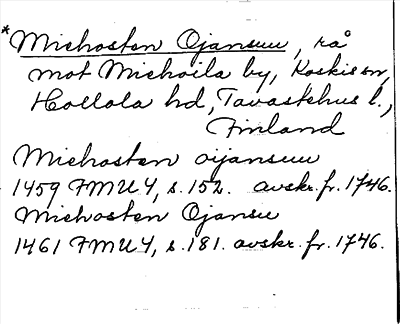 *Miehosten Ojansuu, rå
mot Miehoila by, Koskis sn,
Hollola hd, Tavastehus l.,
Finland
Miehosten oijansuu
1459 FMU 4, s. 152. avskr. fr. 1746.
Miehosten Ojansu
1461 FMU 4, s. 181. avskr. fr. 1746.